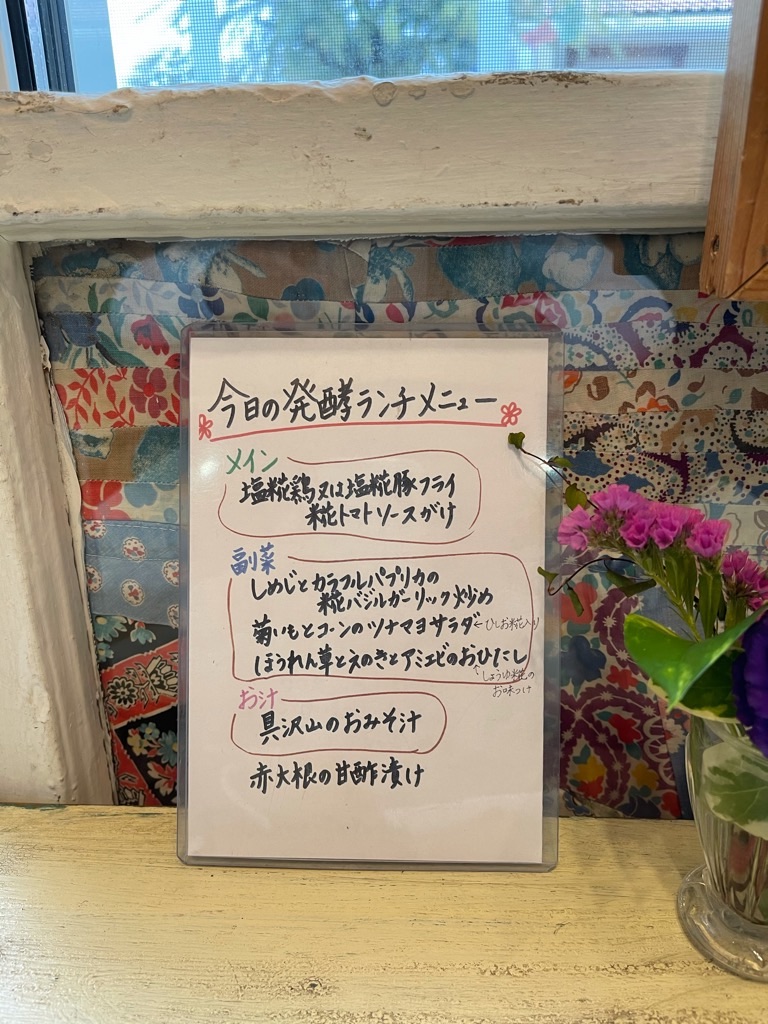 今日の発酵ランチメニュー
メイン
塩糀鶏又は塩糀豚フライ
糀トマトソースがけ
副菜
しめじとカラフルパプリカの
糀バジルガーリック炒め
菊いもとコーンのツナマヨサラダ ←ひしお糀入り
ほうれん草とえのきとアミエビのおひたし
↑しょうゆ糀の
お味つけ
お汁
具沢山のおみそ汁
赤大根の甘酢漬け